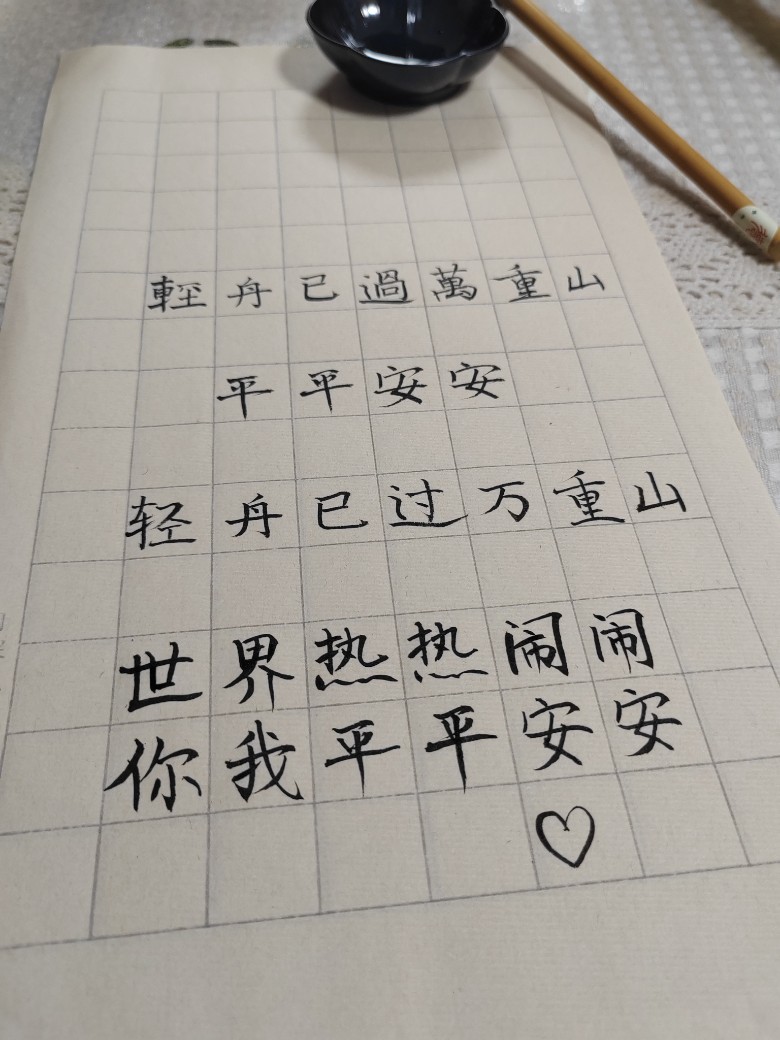 輕舟已過萬重山
平平安安
轻舟已过万重山
世界热热闹闹
你我平平安安
♡